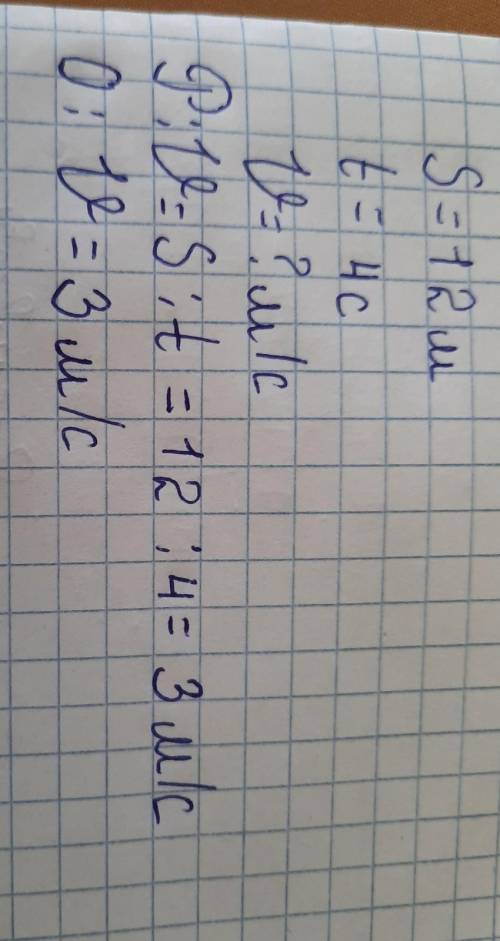 S = 12 м
t = 4с
V = ? м/с
Р: V = S : t = 12 : 4 = 3 м/с
О: V = 3 м/с